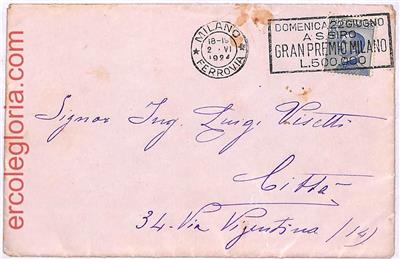 ercolegloria.com
MILANO
18-19
2 · VI
1924
FERROVIA
DOMENICA 22 GIUGNO
A S. SIRO
GRAN PREMIO MILANO
L.500,000
Signor Ing. Luigi Visetti
Città
34-Via Vigentina (14)